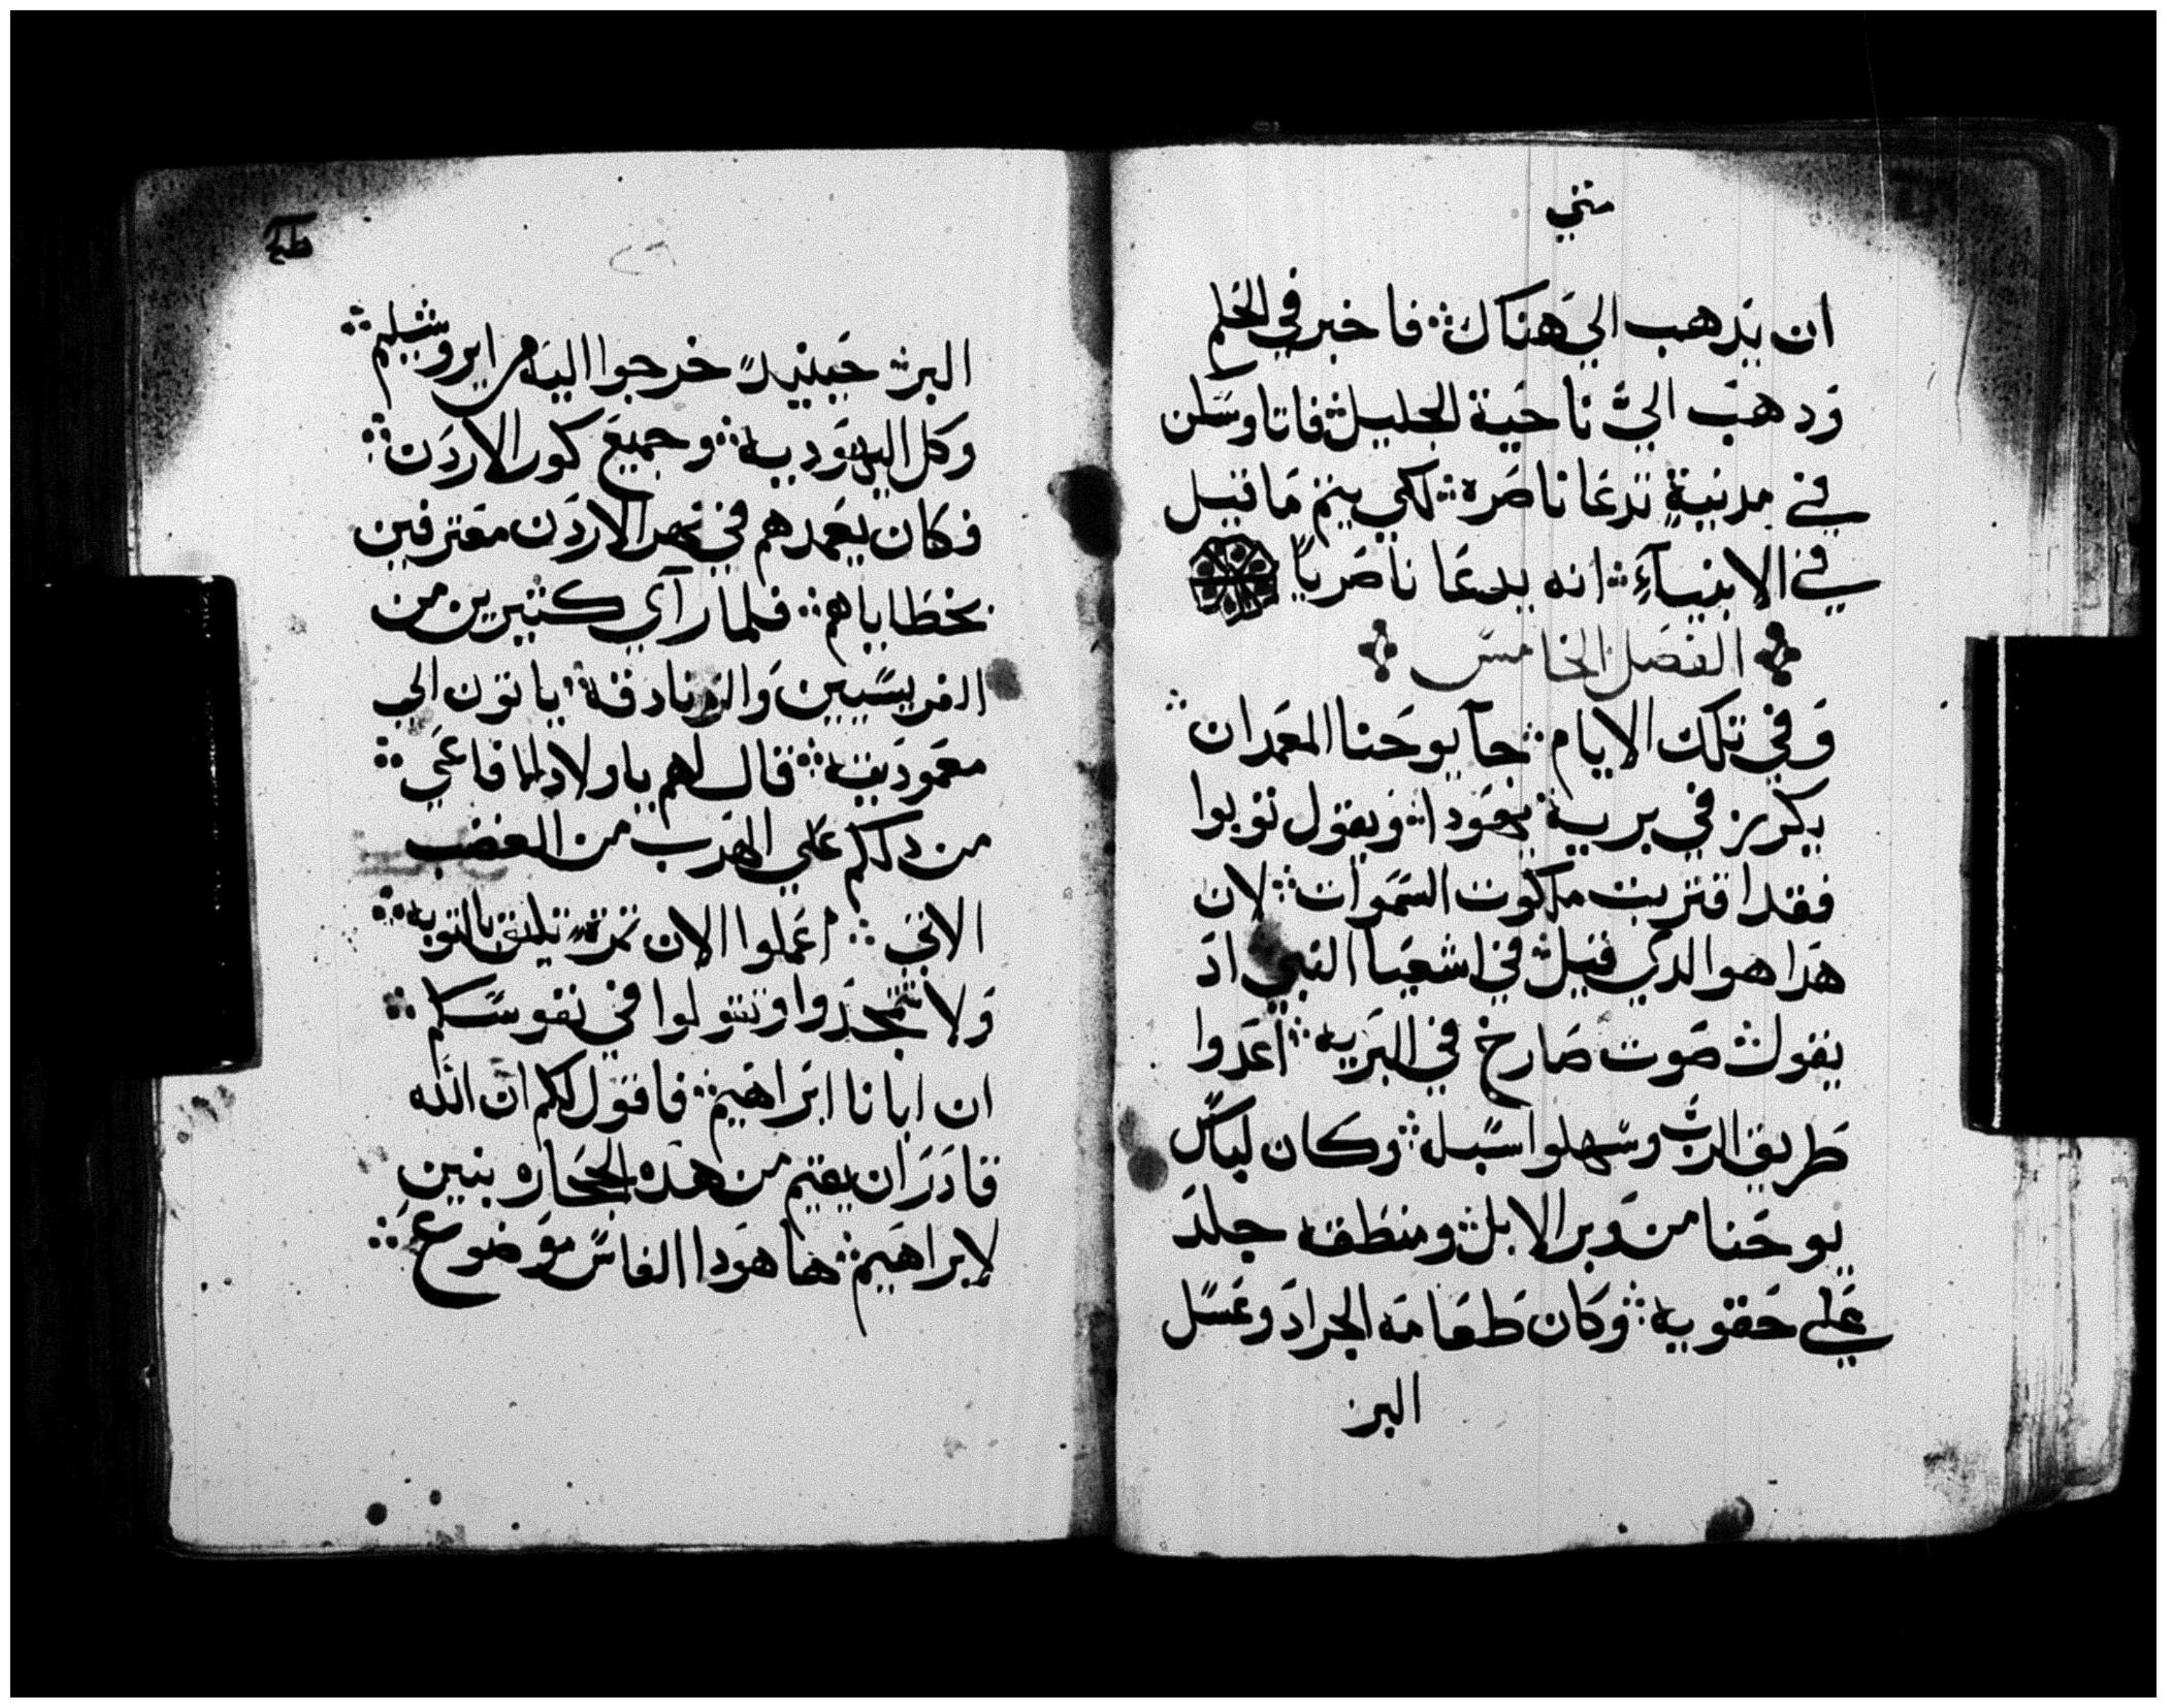 متي
ان يدهب الي هناك ⁘ فاخبر في الحلم
ودهب الي ناحية الجليل ⁘ فاتا وسكن
في مدنية تدعا ناصره ⁘ لكي يتم ما قيل
في الانبيآء ⁘ انه يدعا ناصريا
الفصل الخامس
وفي تلك الايام ⁘ جآ يوحنا المعمدان ⁘
يكرز في برية يهودا ⁘ ويقول توبوا
فقد اقتربت ملكوت السموات ⁘ لان
هدا هو الدي قيل في اشعيا النبي اد
يقول ⁘ صوت صارخ في البريه ⁘ اعدوا
طريق الرب وسهلوا سبله ⁘ وكان لباس
يوحنا من وبر الابل ⁘ ومنطقه جلد
علي حقويه ⁘ وكان طعامه الجراد وعسل
البر
البر ⁘ حينيد خرجوا اليه من ايروشليم ⁘
وكل اليهوديه ⁘ وجميع كور الاردن ⁘
فكان يعمدهم في نهر الاردن معترفين
بخطاياهم ⁘ فلما رآي كثيرين من
الفريسيين والزنادقة ⁘ ياتون الي
معموديته ⁘ قال لهم ياولاد الافاعي ⁘
من دلكم علي الهرب من الغضب
الاتي ⁘ اعملوا الان ثمرة تليق بالتوبه ⁘
ولا تتمجدوا وتقولوا في نفوسكم ⁘
ان ابانا ابراهيم ⁘ فاقول لكم ان الله
قادر ان يقيم من هده الحجاره بنين
لابراهيم ⁘ ها هودا الفاس موضوع ⁘